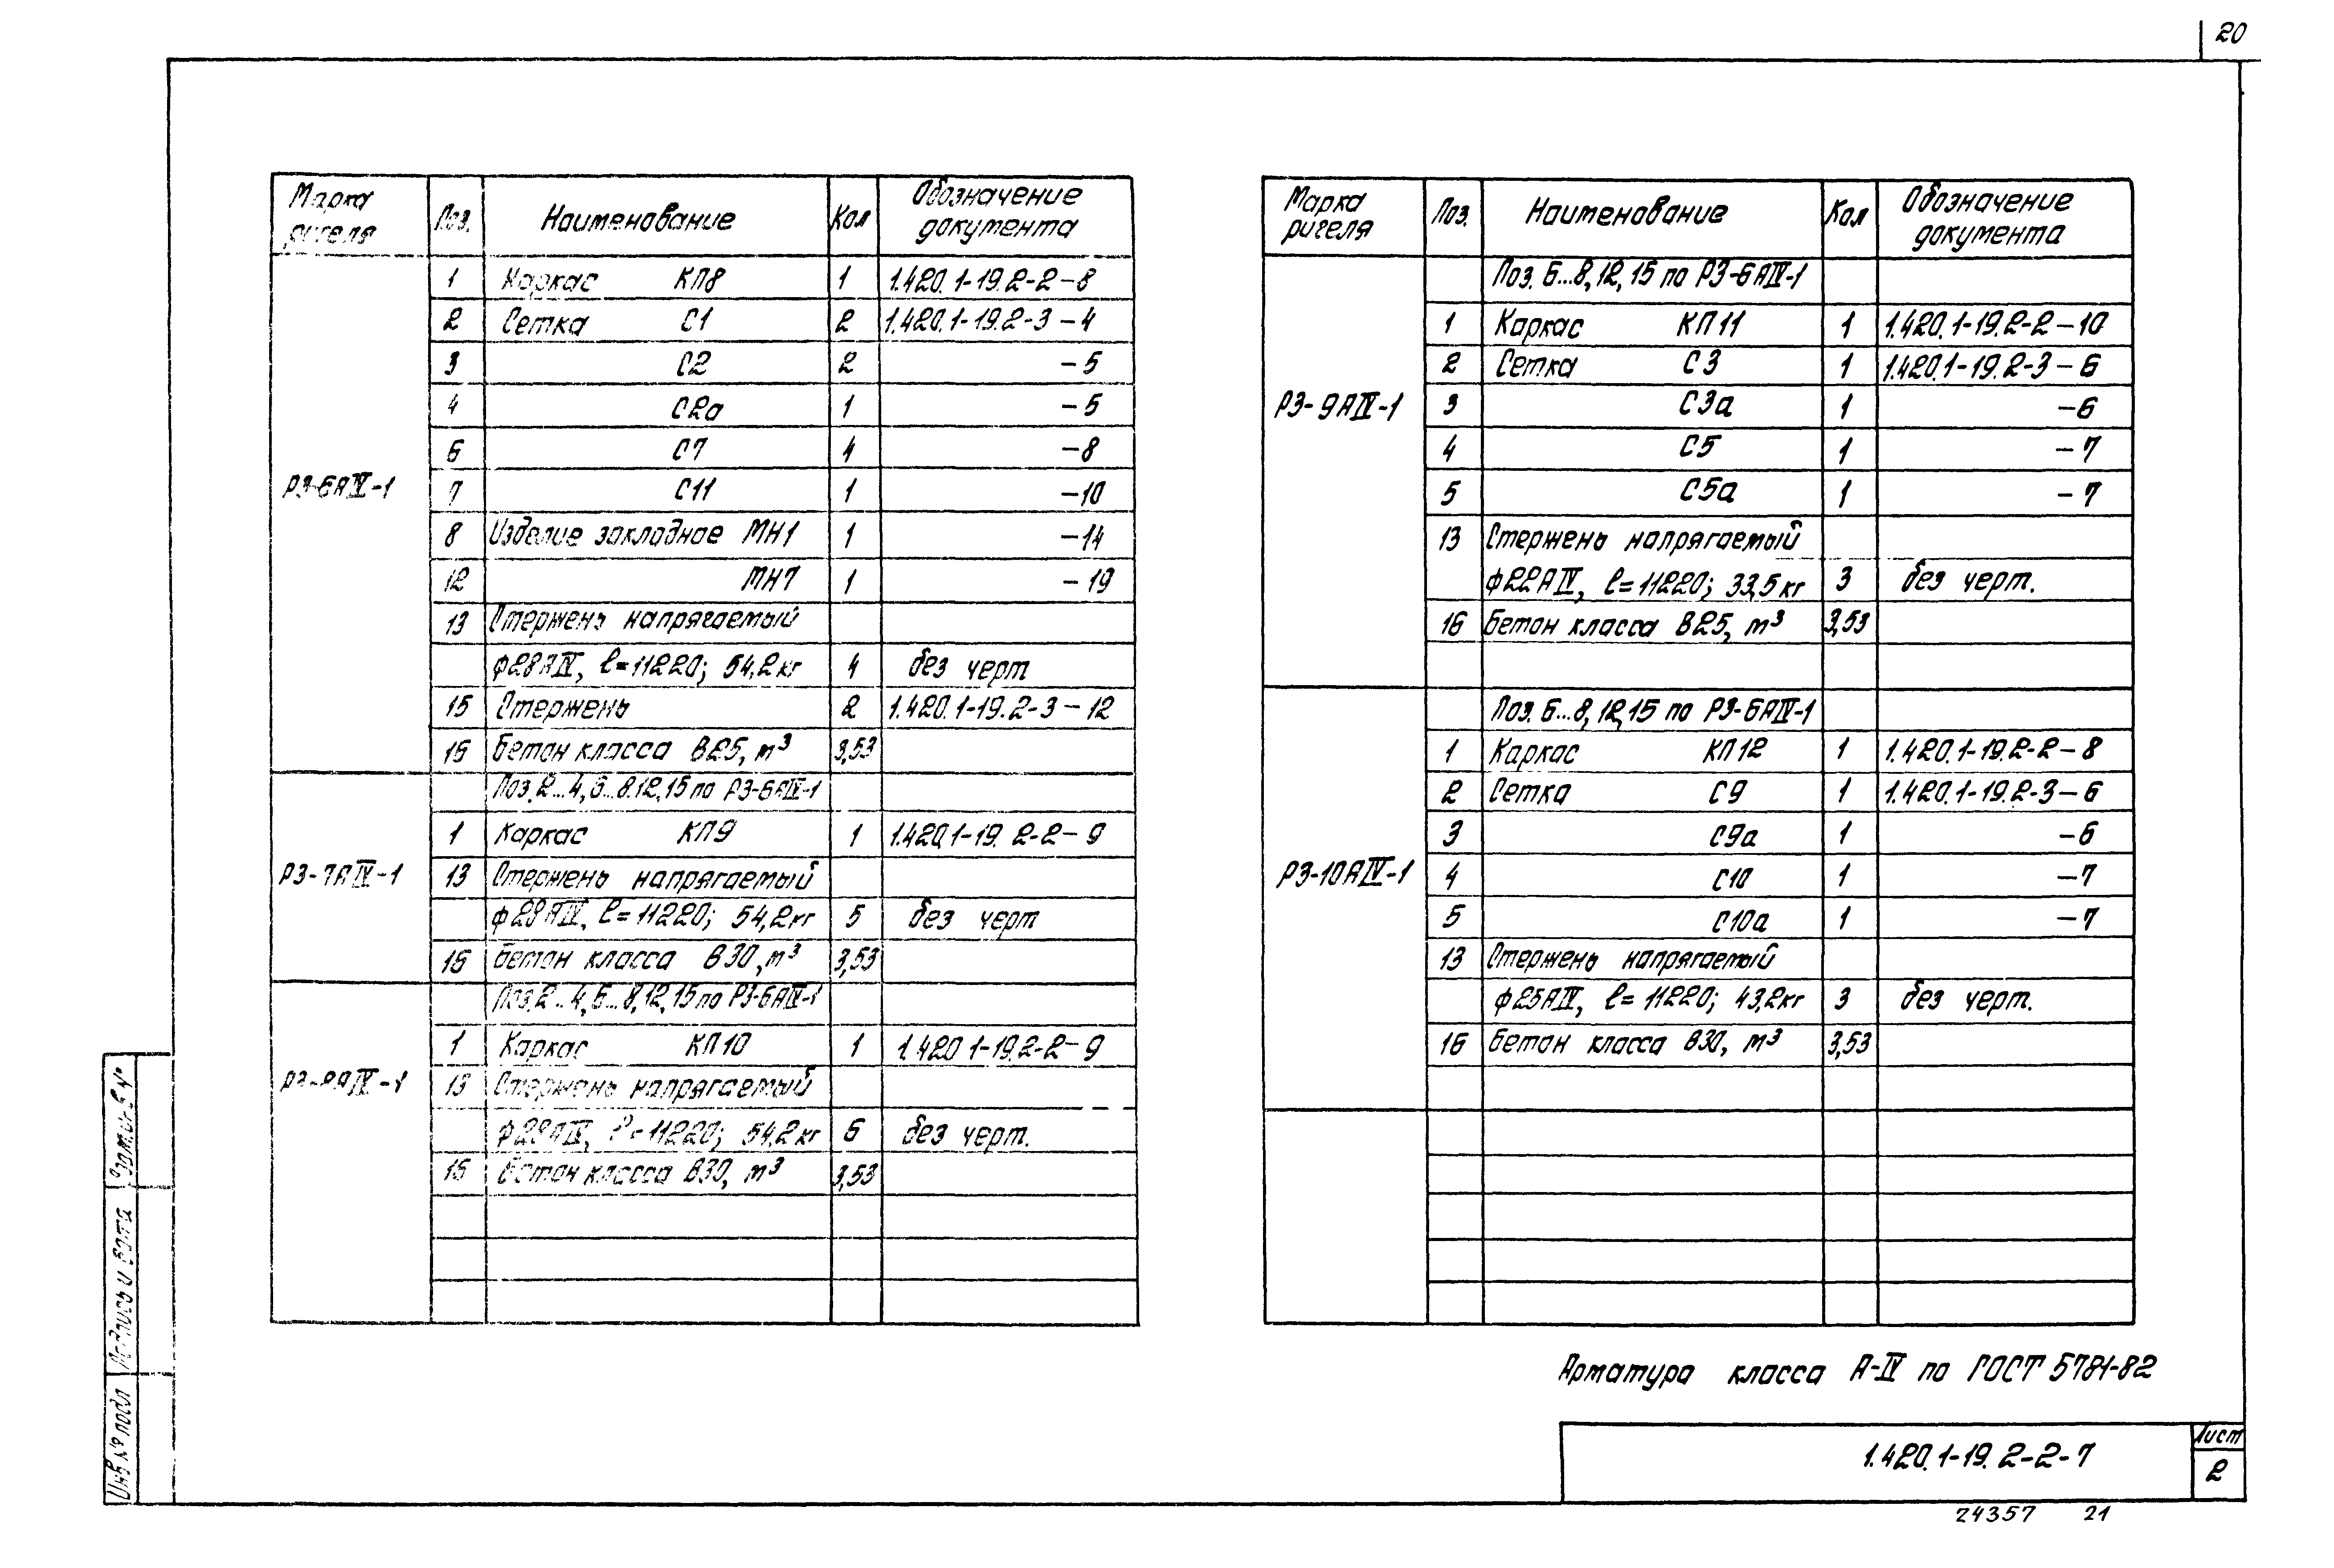 20
Марка ригеля Поз. Наименование Кол Обозначение документа
РЗ-6АIV-1
1 Каркас КП8 1 1.420.1-19.2-2-8
2 Сетка С1 2 1.420.1-19.2-3-4
3 С2 2 -5
4 С2а 1 -5
6 С7 4 -8
7 С11 1 -10
8 Изделие закладное МН1 1 -14
12 МН7 1 -19
13 Стержень напрягаемый
ф28АIV, ℓ=11220; 54,2кг 4 без черт
15 Стержень 2 1.420.1-19.2-3-12
16 Бетон класса В25, м³ 3,53
РЗ-7АIV-1
Поз. 2...4, 6...8, 12, 15 по РЗ-6АIV-1
1 Каркас КП9 1 1.420.1-19.2-2-9
13 Стержень напрягаемый
ф28АIV, ℓ=11220; 54,2кг 5 без черт
16 Бетон класса В30, м³ 3,53
РЗ-8АIV-1
Поз. 2...4, 6...8, 12, 15 по РЗ-6АIV-1
1 Каркас КП10 1 1.420.1-19.2-2-9
13 Стержень напрягаемый
ф28АIV, ℓ=11220; 54,2кг 6 без черт.
16 Бетон класса В30, м³ 3,53
Марка ригеля Поз. Наименование Кол Обозначение документа
РЗ-9АIV-1
Поз. 6...8, 12, 15 по РЗ-6АIV-1
1 Каркас КП11 1 1.420.1-19.2-2-10
2 Сетка С3 1 1.420.1-19.2-3-6
3 С3а 1 -6
4 С5 1 -7
5 С5а 1 -7
13 Стержень напрягаемый
ф22АIV, ℓ=11220; 33,5кг 3 без черт.
16 Бетон класса В25, м³ 3,53
РЗ-10АIV-1
Поз. 6...8, 12, 15 по РЗ-6АIV-1
1 Каркас КП12 1 1.420.1-19.2-2-8
2 Сетка С9 1 1.420.1-19.2-3-6
3 С9а 1 -6
4 С10 1 -7
5 С10а 1 -7
13 Стержень напрягаемый
ф25АIV, ℓ=11220; 43,2кг 3 без черт.
16 Бетон класса В30, м³ 3,53
Арматура класса А-IV по ГОСТ 5781-82
1.420.1-19.2-2-7
Лист
2
24357 21
Инв № подл
Подпись и дата
Взам.инв №